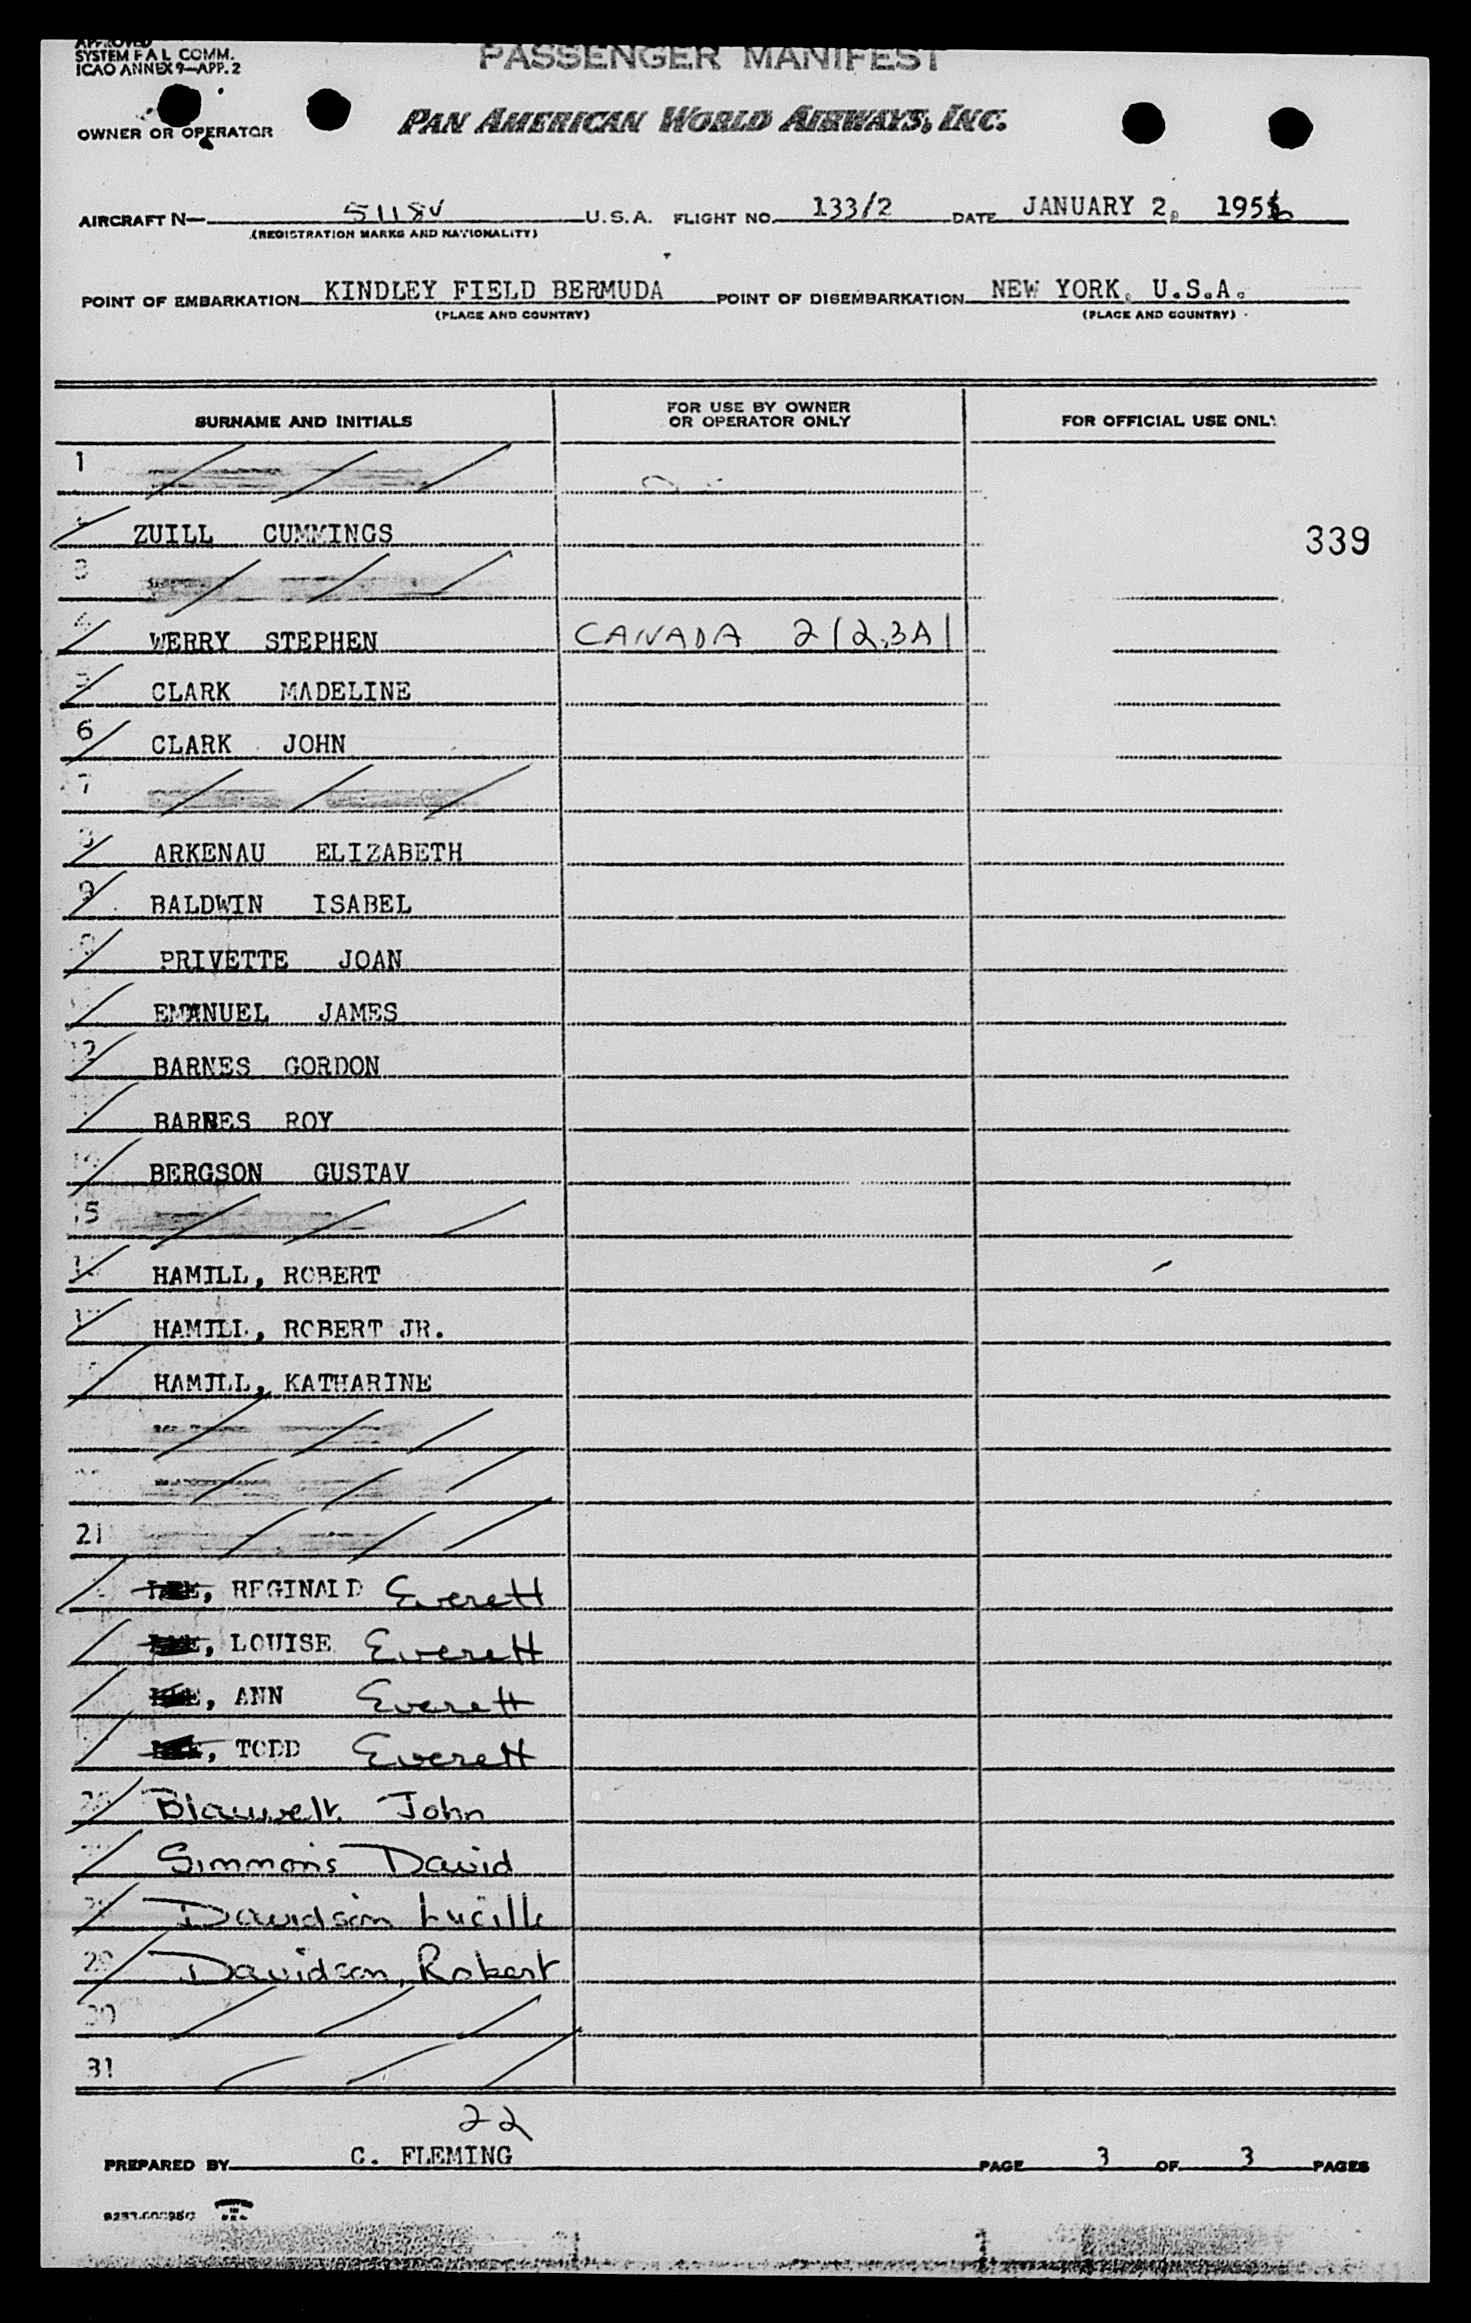 APPROVED
SYSTEM F A L COMM.
ICAO ANNEX 9—APP. 2
PASSENGER MANIFEST
OWNER OR OPERATOR PAN AMERICAN WORLD AIRWAYS, INC.
AIRCRAFT N— 5118V U.S.A. FLIGHT NO. 133/2 DATE JANUARY 2, 1956
(REGISTRATION MARKS AND NATIONALITY)
POINT OF EMBARKATION KINDLEY FIELD BERMUDA POINT OF DISEMBARKATION NEW YORK, U.S.A.
(PLACE AND COUNTRY) (PLACE AND COUNTRY)
SURNAME AND INITIALS FOR USE BY OWNER OR OPERATOR ONLY FOR OFFICIAL USE ONLY
1
ZUILL CUMMINGS 339
3
4 WERRY STEPHEN CANADA 212.3A1
5 CLARK MADELINE
6 CLARK JOHN
7
8 ARKENAU ELIZABETH
9 BALDWIN ISABEL
PRIVETTE JOAN
EMANUEL JAMES
12 BARNES GORDON
BARNES ROY
14 BERGSON GUSTAV
15
16 HAMILL, ROBERT
17 HAMILL, ROBERT JR.
HAMILL, KATHARINE
21
LEE, REGINALD Everett
LEE, LOUISE Everett
LEE, ANN Everett
LEE, TODD Everett
26 Blauvelt John
Simmons David
28 Davidson Lucille
29 Davidson, Robert
30
31
22
PREPARED BY C. FLEMING PAGE 3 OF 3 PAGES